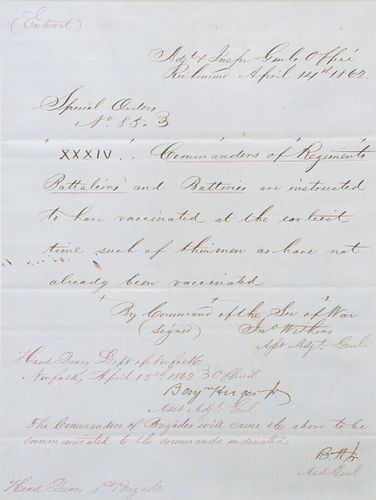 (Extract)
Adjt & Inspr Genls Office
Richmond April 14th 1862.
Special Orders
No 85. 3
"XXXIV". Commanders of Regiments
Battalions and Batteries are instructed
to have vaccinated at the earliest
time such of their men as have not
already been vaccinated
By Command of the Sec of War
(signed) Jno Withers
Asst Adjt. Genl
Head Qurs Dept of Norfolk
Norfolk, April 15th 1862 } Official
Benjn Huger Jr
Asst Adjt. Genl
The Commanders of Brigades will cause the above to be
communicated to the commands indicated
B H Jr
Head Qurs 1st Brigade